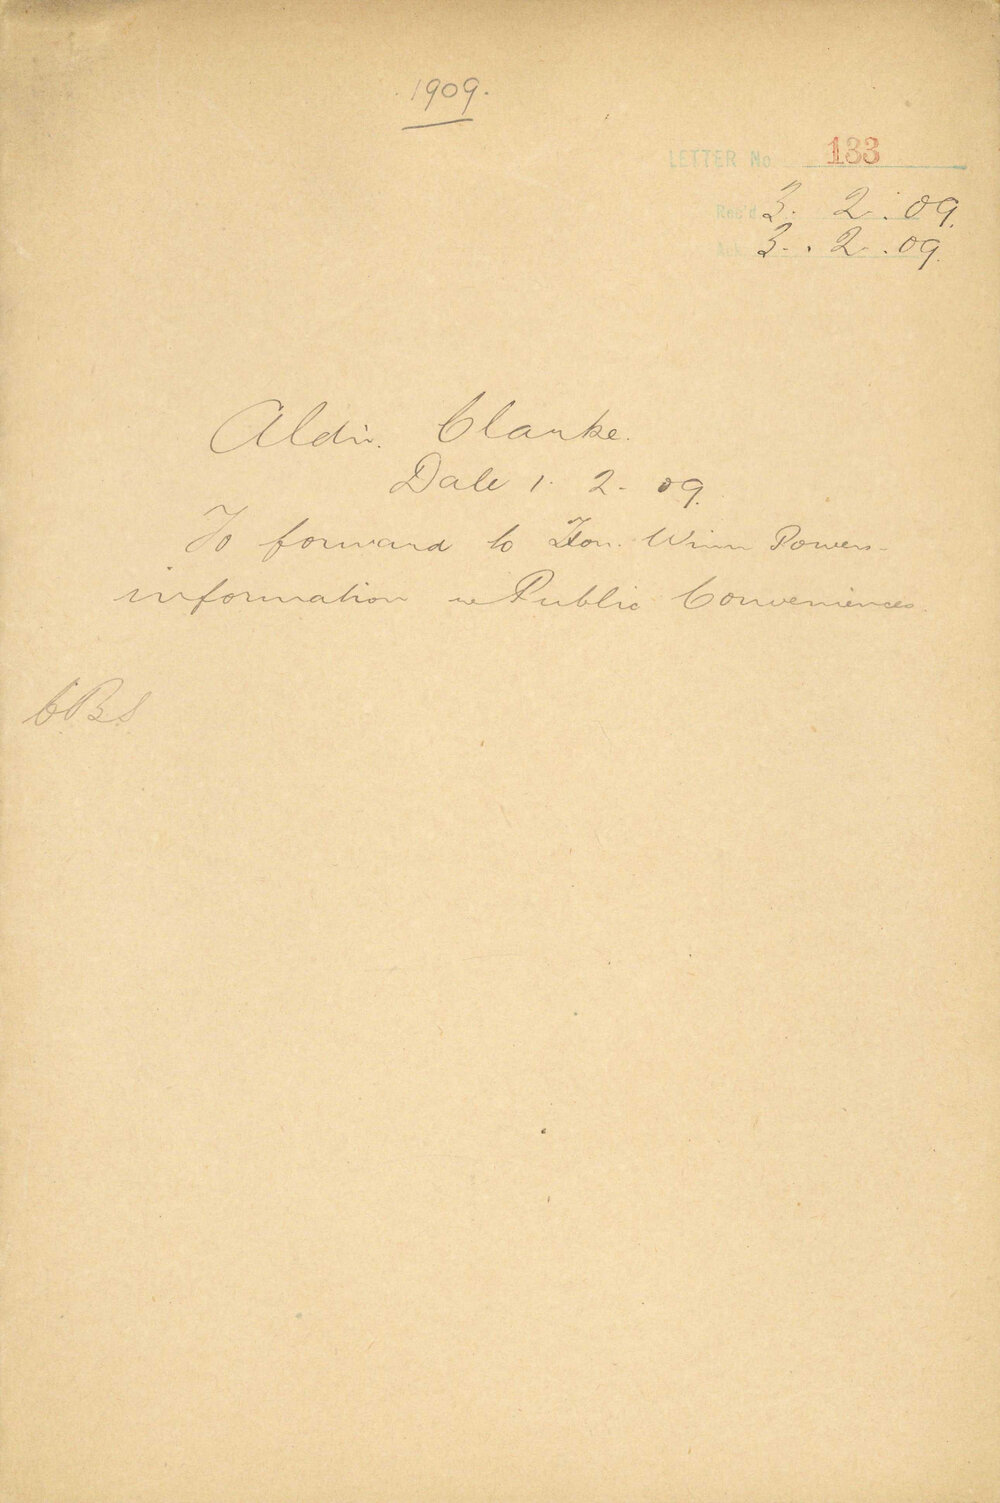 1909.
LETTER No 133
Rec'd 3. 2. 09.
Ack 3. 2. 09.
Aldn. Clarke.
Date 1. 2. 09.
To forward to Hon. Winn Powers
information re Public Conveniences.
CBS